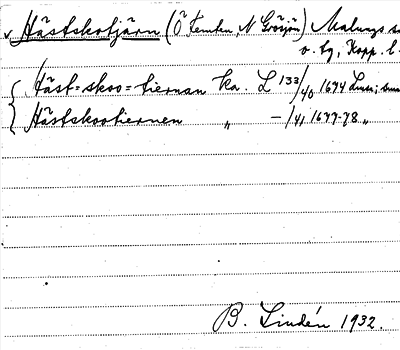 v Hästskotjärn (Ö Femten, N Grösjön) Malungs s
o. tg, Kopp. l.
Häst=skoo=tiernan Ka. L 133/40 1674
Hästskootiernen " -/41 1677-78 "
B. Lindén 1932.